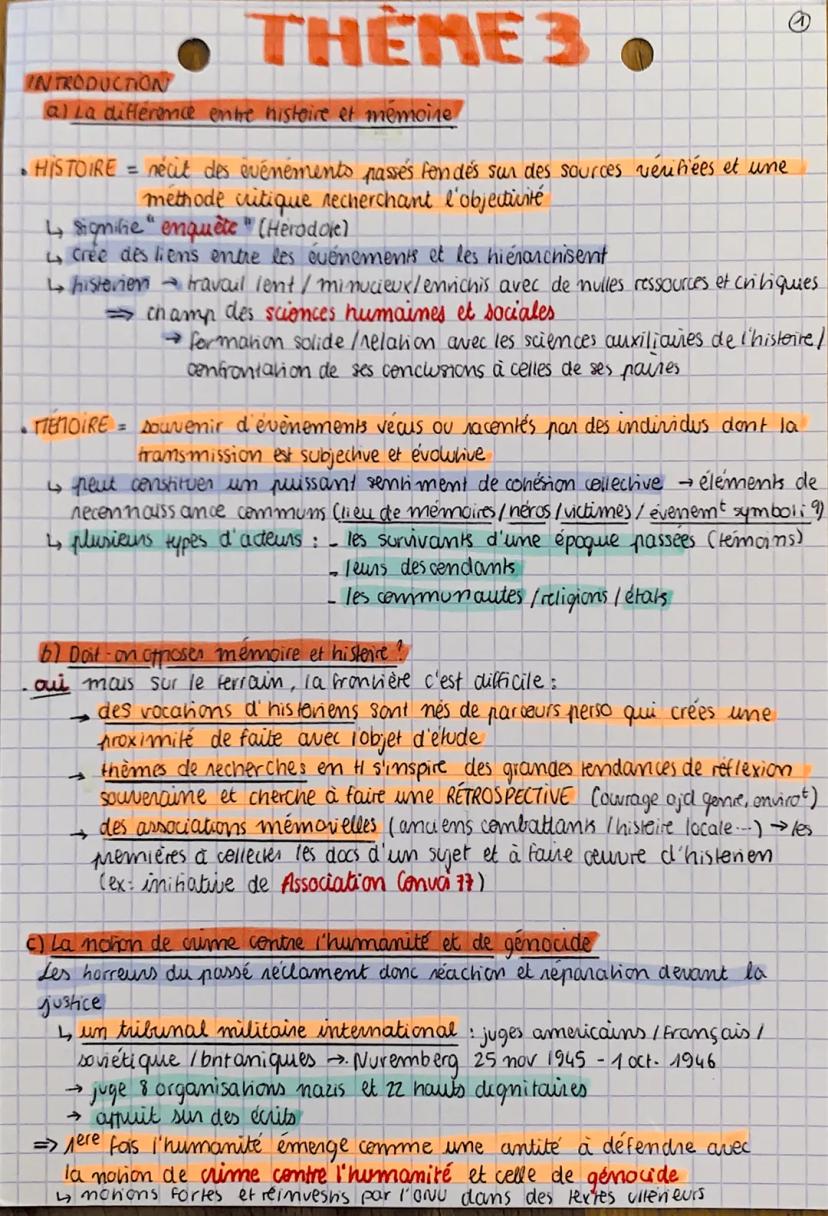 ①
THÈME 3
INTRODUCTION
a) La différence entre histoire et mémoire
. HISTOIRE = récit des évènéments passés fondés sur des sources vérifiées et une
méthode critique recherchant l'objectivité
↳ signifie "enquête" (Hérodote)
↳ crée des liens entre les évènements et les hiérarchisent
↳ historien → travail lent / minucieux/enrichis avec de nvlles ressources et critiques
⇒ champ des sciences humaines et sociales
→ formation solide /relation avec les sciences auxiliaires de l'histoire/
confrontation de ses conclusions à celles de ses paires
. MÉMOIRE = souvenir d'évènements vécus ou racontés par des individus dont la
transmission est subjective et évolutive
↳ peut constituer un puissant sentiment de cohésion collective → éléments de
reconnaissance communs (lieu de mémoires/héros/victimes/évenemt symboliq)
↳ plusieurs types d'acteurs : - les survivants d'une époque passées (témoins)
- leurs descendants
- les communautes /religions /états
b) Doit-on opposer mémoire et histoire ?
. oui mais sur le terrain, la frontière c'est difficile :
→ des vocations d'historiens sont nés de parcours perso qui crées une
proximité de faite avec l'objet d'étude
→ thèmes de recherches en H s'inspire des grandes tendances de réflexion
souveraine et cherche à faire une RÉTROSPECTIVE (ouvrage ajd genre, envirot)
→ des associations mémorielles (anciens combattants /histoire locale...) → les
premières à collecter les docs d'un sujet et à faire œuvre d'historien
(ex: initiative de Association Convoi 77)
c) La notion de crime contre l'humanité et de génocide
Les horreurs du passé réclament donc réaction et réparation devant la
justice
↳ un tribunal militaire international : juges americains /Français /
soviétique /britaniques → Nuremberg 25 nov 1945 - 1 oct. 1946
→ juge 8 organisations nazis et 22 hauts dignitaires
→ appuit sur des écrits
⇒ 1ere fois l'humanité émerge comme une antité à défendre avec
la notion de crime contre l'humanité et celle de génocide
↳ notions fortes et réinvestis par l'ONU dans des textes ultérieurs